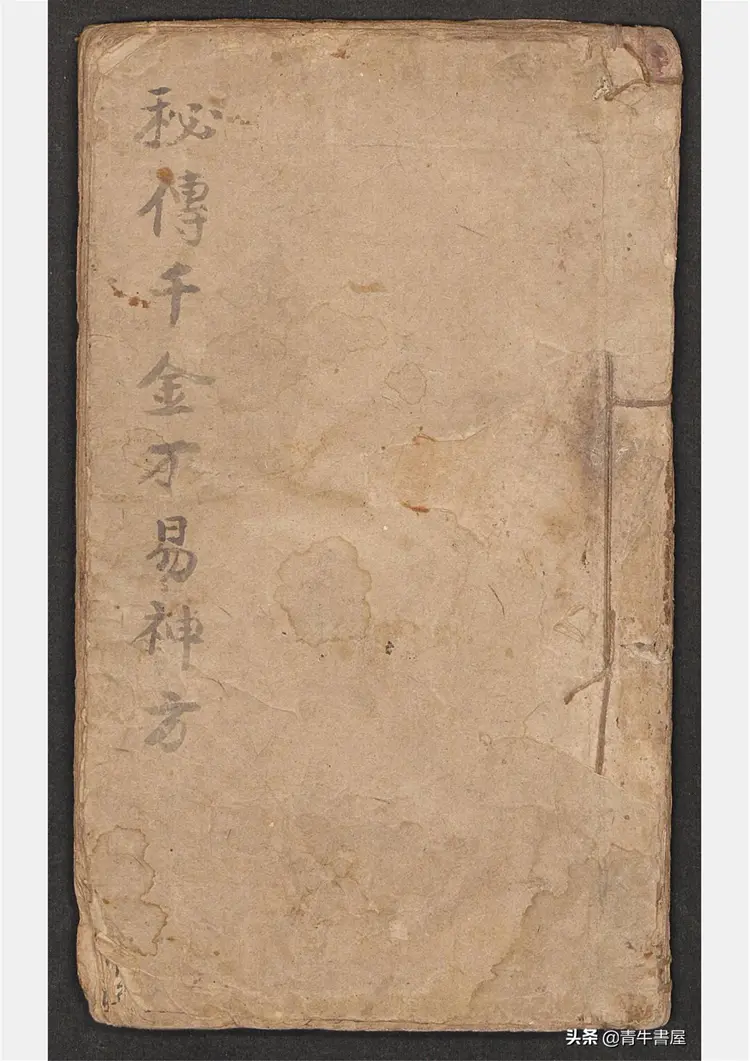 秘傳千金不易神方
头条 @青牛書屋